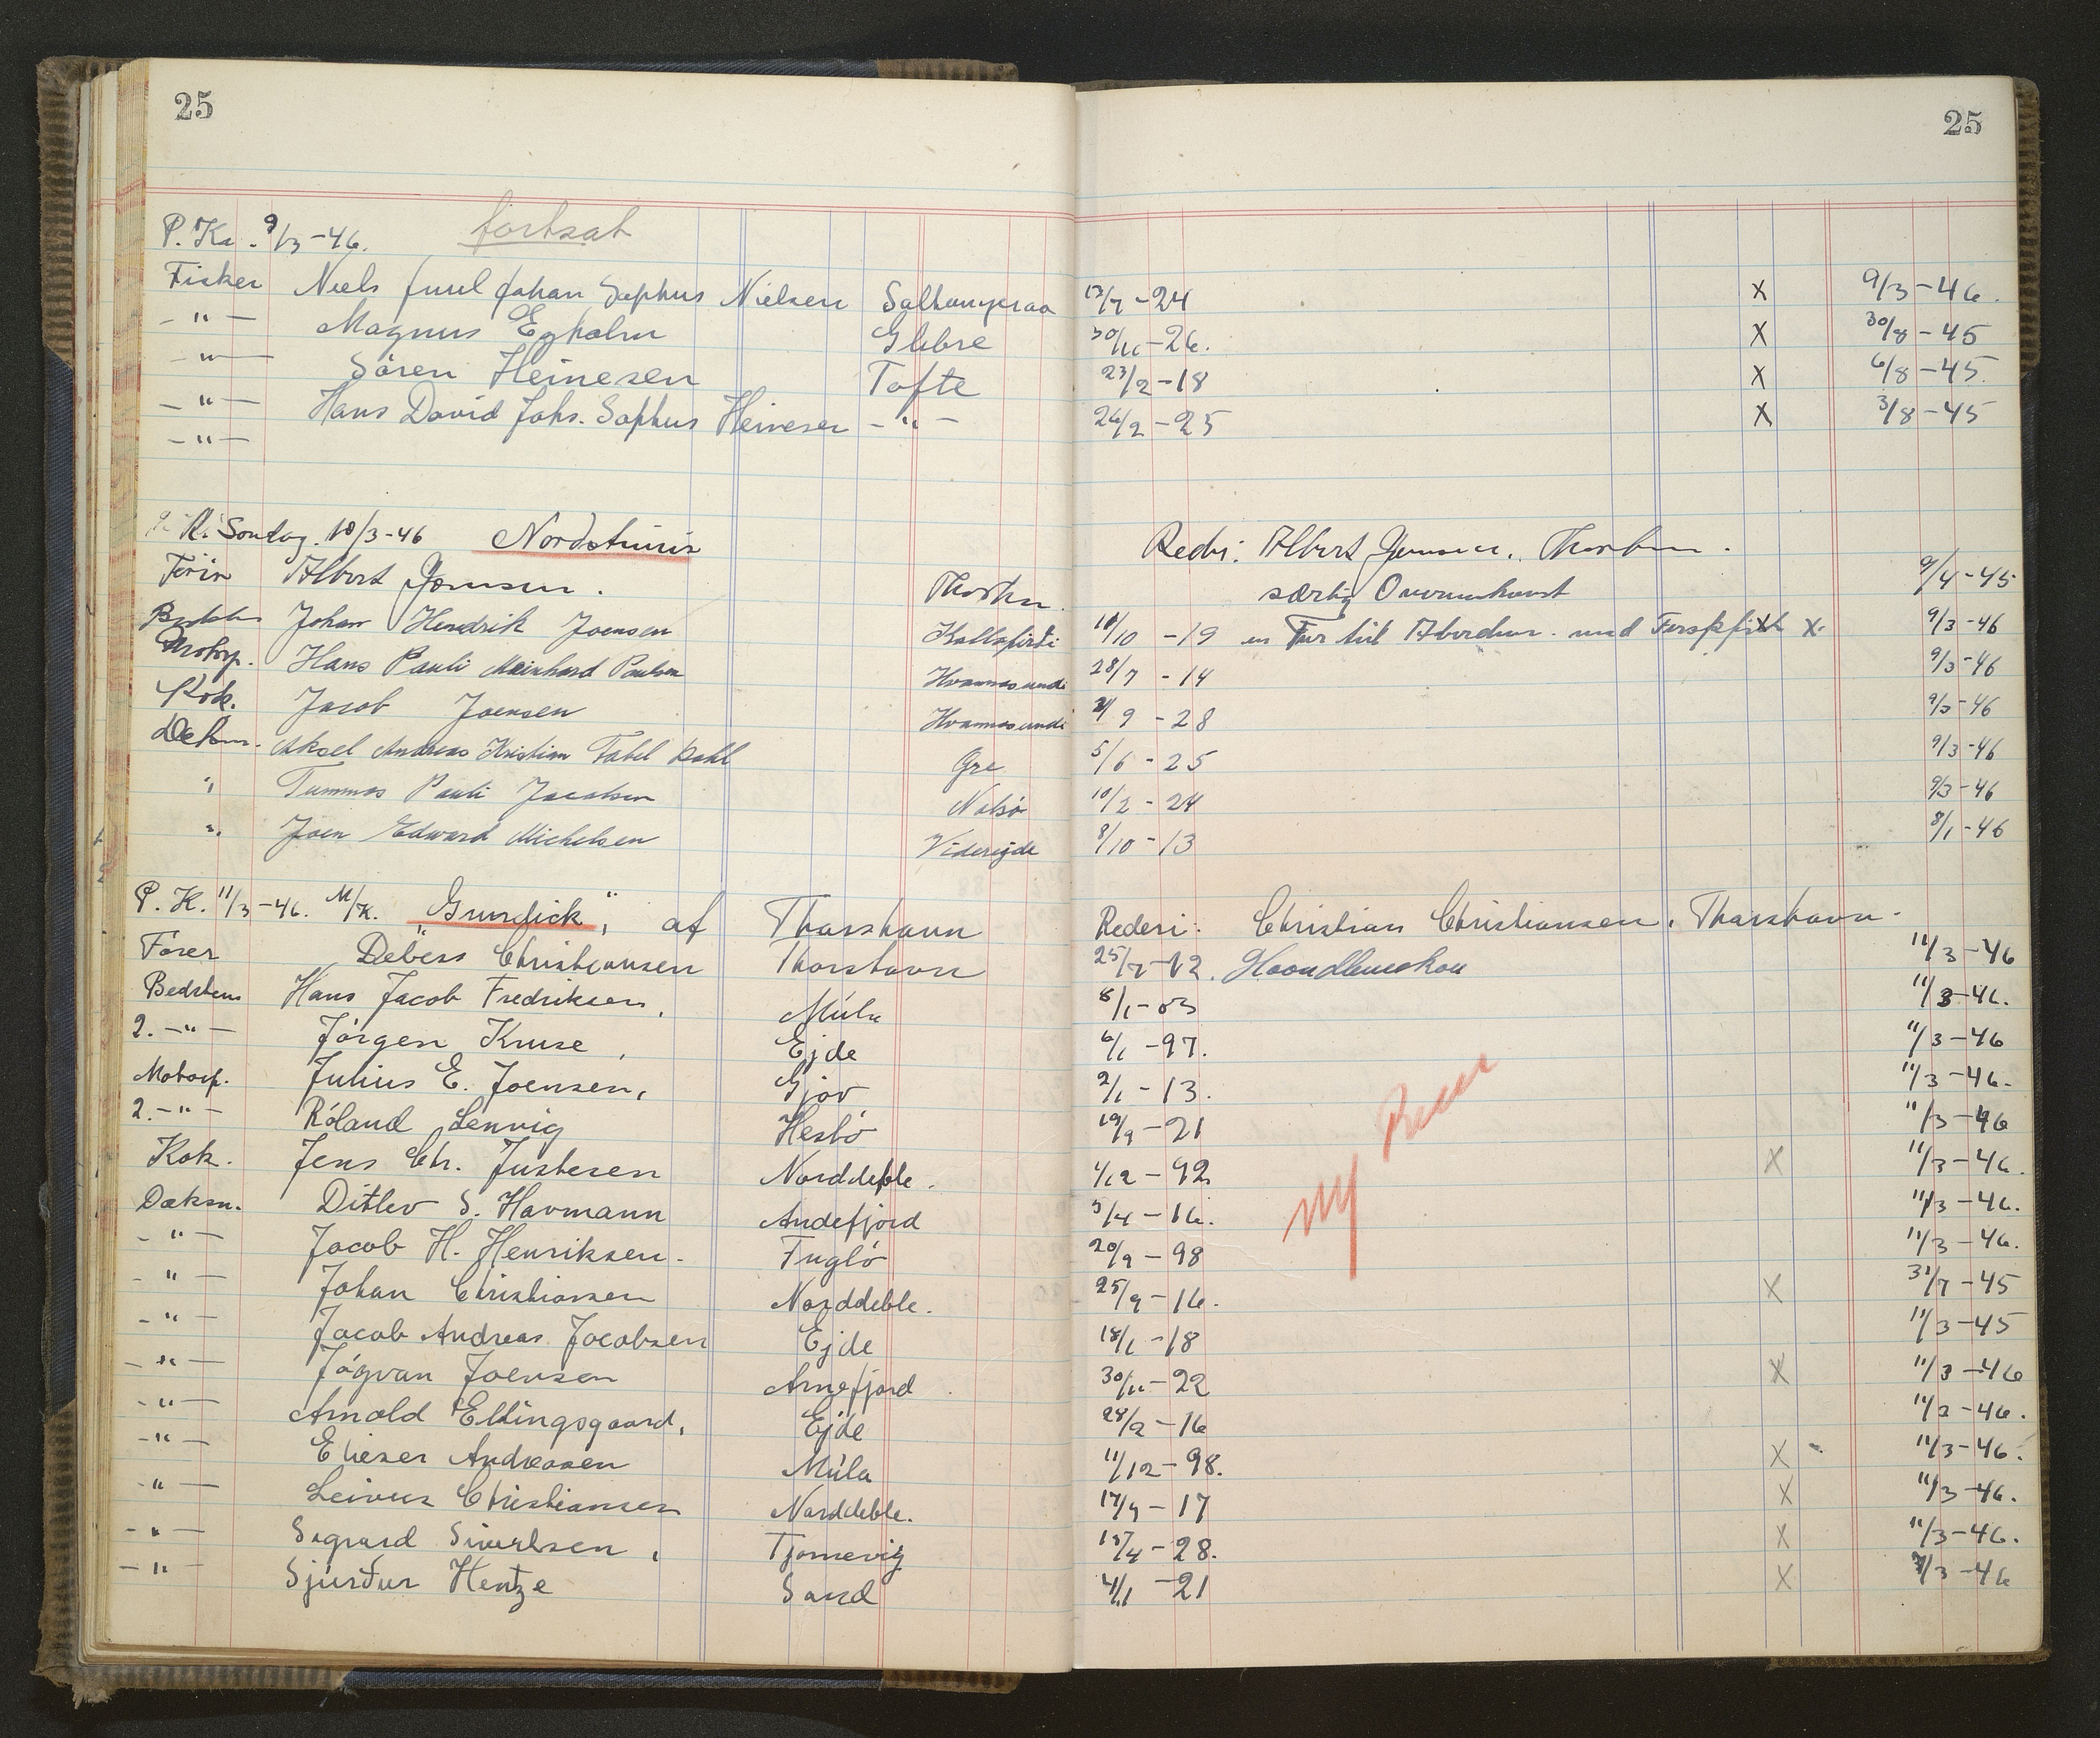 25 25
fortsat
P. Kr. 9/3-46.
Fisker Niels Juul Johan Sophus Nielsen 13/7-24 X 9/3-46.
-"- Magnus Egholm Glibre 30/11-26. X 30/8-45
-"- Sören Heinesen Tofte 23/2-18 X 6/8-45.
-"- Hans David Johs. Sophus Heinesen -"- 26/2-25 X 3/8-45
-"-
Søndag. 10/3-46 Redri: Albert Thorshavn.
Albert særlig Overenskomst 9/4-45
Johan Hendrik Joensen 11/10-19 en Tur til med X 9/3-46
Hans Pauli Meinhard Poulsen Hvannasundi 28/7-14 9/3-46
Kok. Jacob Joensen Hvannasundi 9-28 9/3-46
Aksel Andreas Kristian Dahl 5/6-25 9/3-46
" Tummas Pauli Jacobsen Nolsö 10/2-24 9/3-46
" Joen Edward Michelsen Viderejde 8/10-13 8/1-46
P. K. 11/3-46. M/K. af Thorshavn Rederi: Christian Christiansen, Thorshavn.
Förer Debess Christiansen Thorshavn 25/7-12. 11/3-46
Bedstem Hans Jacob Fredriksen, Múla 8/1-03 11/3-46.
2.-"- Jörgen Kruse, Ejde 6/1-97. 11/3-46
Motorp. Julius E. Joensen, Gjov 2/1-13. 11/3-46.
2.-"- Róland Lenvig Hestö 19/9-21 11/3-46
Kok. Jens Chr. Justesen Norddeble. 1/12-92 X 11/3-46.
Dæksm. Ditlev S. Havmann Andefjord 3/4-16. 11/3-46.
-"- Jacob H. Henriksen. Fuglö 20/9-98 11/3-46.
-"- Johan Christiansen Norddeble. 25/9-16. X 31/7-45
-"- Jacob Andreas Jacobsen Ejde 18/1-18 11/3-45
-"- Jógvan Joensen Arnefjord 30/11-22 X 11/3-46
-"- Arnold Ellingsgaard, Ejde 28/2-16 11/3-46.
-"- Elieser Andreasen Múla 11/12-98. X 11/3-46.
-"- Leivur Christiansen Norddeble. 17/9-17 X 11/3-46.
-"- Sigvard Sivertsen, Tjørnevig 15/4-28. X 11/3-46.
-"- Sjúrður Hentze Sand 4/1-21 X 3-46
ny